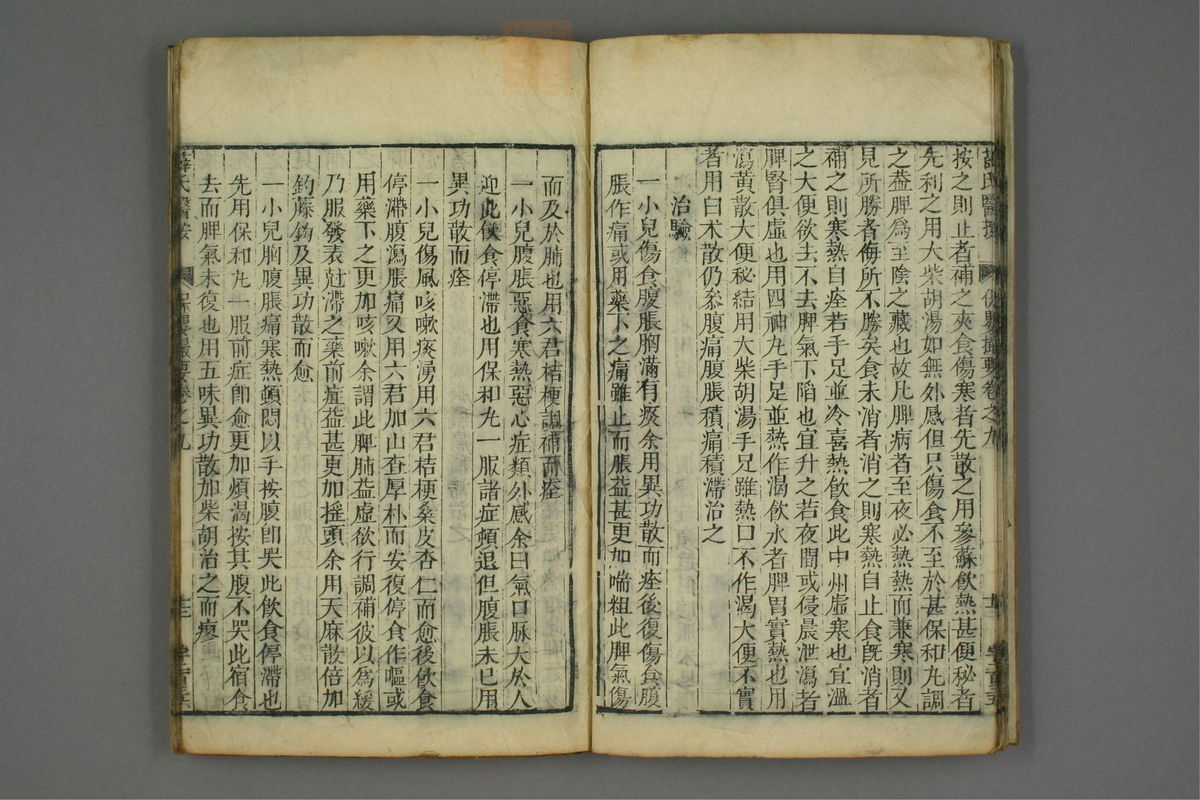 薛氏醫按 保嬰撮要卷之九
按之則止者補之夾食傷寒者先散之用參蘇飲熱甚便秘者
先利之用大柴胡湯如無外感但只傷食不至於甚保和丸調
之葢脾爲至陰之藏也故凡脾病者至夜必熱熱而兼寒則又
見所勝者侮所不勝矣食未消者消之則寒熱自止食旣消者
補之則寒熱自痊若手足並冷喜熱飲食此中州虛寒也宜溫
之大便欲去不去脾氣下陷也宜升之若夜間或侵晨泄瀉者
脾腎俱虛也用四神丸手足並熱作渴飲水者脾胃實熱也用
瀉黃散大便秘結用大柴胡湯手足雖熱口不作渴大便不實
者用白术散仍叅腹痛腹脹積痛積滯治之
治驗
一小兒傷食腹脹胸滿有痰余用異功散而痊後復傷食腹
脹作痛或用藥下之痛雖止而脹益甚更加喘粗此脾氣傷
而及於肺也用六君桔梗調補而痊
一小兒腹脹惡食寒熱惡心症類外感余曰氣口脉大於人
迎此飲食停滯也用保和丸一服諸症頓退但腹脹未已用
異功散而痊
一小兒傷風咳嗽痰湧用六君桔梗桑皮杏仁而愈後飲食
停滯腹瀉脹痛又用六君加山查厚朴而安復停食作嘔或
用藥下之更加咳嗽余謂此脾肺益虛欲行調補彼以爲緩
乃服發表尅滯之藥前症益甚更加搖頭余用天麻散倍加
釣藤鈎及異功散而愈
一小兒胸腹脹痛寒熱頓悶以手按腹卽哭此飲食停滯也
先用保和丸一服前症卽愈更加煩渴按其腹不哭此宿食
去而脾氣未復也用五味異功散加柴胡治之而瘳
薛氏醫按 保嬰撮要卷之九